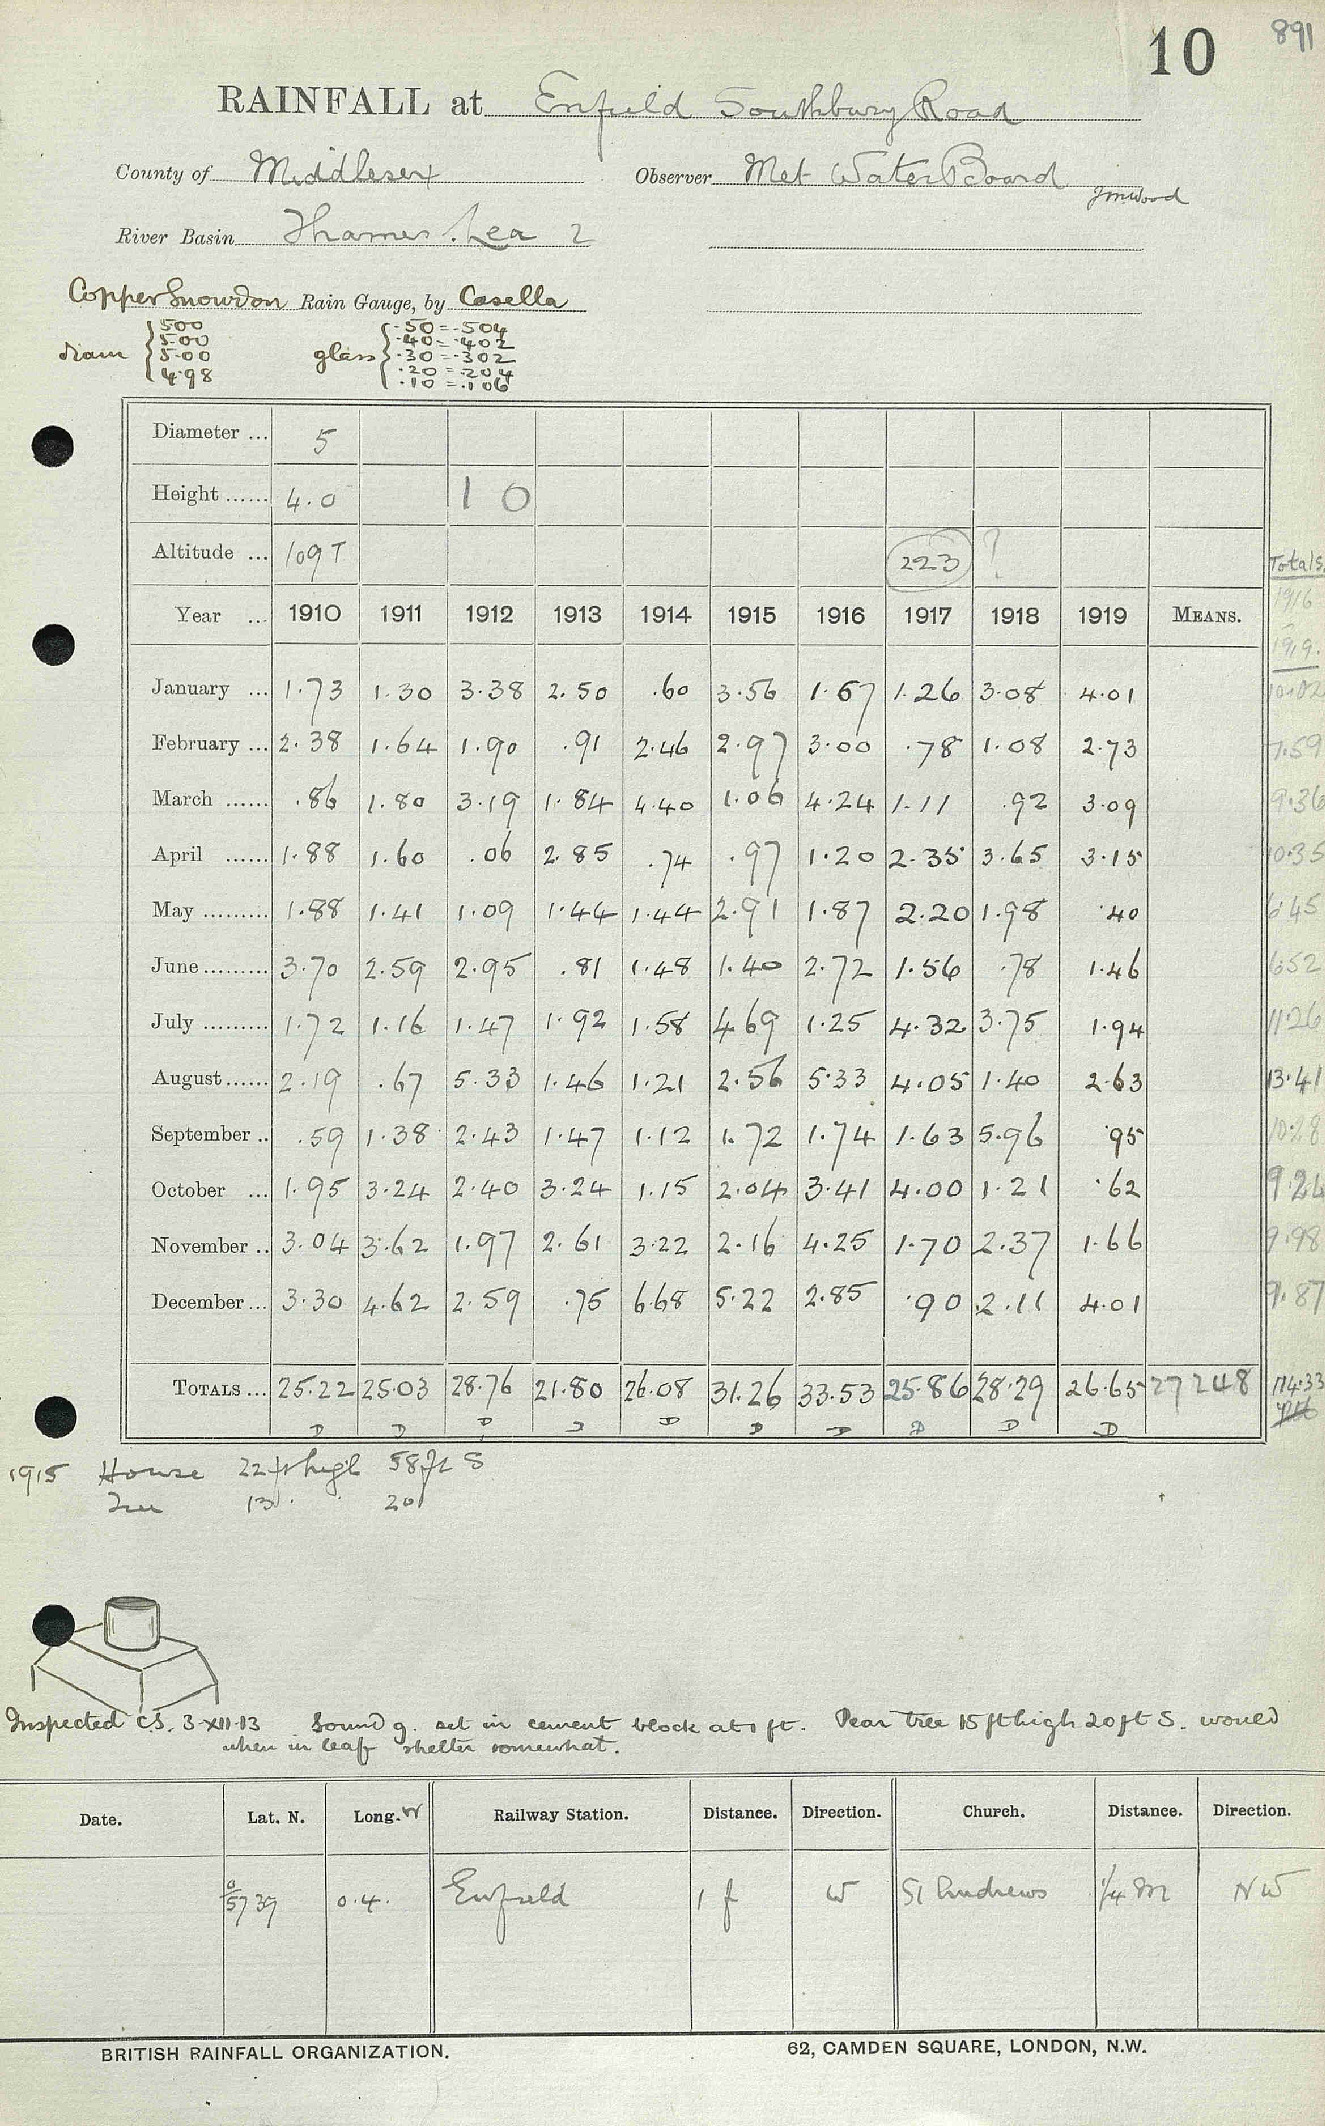 10 891
RAINFALL at Enfield Southbury Road
County of Middlesex Observer Met Water Board
River Basin Thames. Lea 2
Copper Snowdon Rain Gauge, by Casella
diam 5.00 5.00 5.00 4.98 glass .50 = .504
.40 = .402
.30 = .302
.20 = .204
.10 = .106
Diameter ... 5
Height ...... 4.0 1 0
Altitude ... 109 T 223 ? Totals
Year ... 1910 1911 1912 1913 1914 1915 1916 1917 1918 1919 MEANS. 1916 - 1919.
January ... 1.73 1.30 3.38 2.50 .60 3.56 1.67 1.26 3.08 4.01 10.02
February ... 2.38 1.64 1.90 .91 2.46 2.97 3.00 .78 1.08 2.73 7.59
March ...... .86 1.80 3.19 1.84 4.40 1.06 4.24 1.11 .92 3.09 9.36
April ...... 1.88 1.60 .06 2.85 .74 .97 1.20 2.35 3.65 3.15 10.35
May ......... 1.88 1.41 1.09 1.44 1.44 2.91 1.87 2.20 1.98 .40 6.45
June ......... 3.70 2.59 2.95 .81 1.48 1.40 2.72 1.56 .78 1.46 6.52
July ......... 1.72 1.16 1.47 1.92 1.58 4.69 1.25 4.32 3.75 1.94 11.26
August ...... 2.19 .67 5.33 1.46 1.21 2.56 5.33 4.05 1.40 2.63 13.41
September .. .59 1.38 2.43 1.47 1.12 1.72 1.74 1.63 5.96 .95 10.28
October ... 1.95 3.24 2.40 3.24 1.15 2.04 3.41 4.00 1.21 .62 9.24
November .. 3.04 3.62 1.97 2.61 3.22 2.16 4.25 1.70 2.37 1.66 9.98
December ... 3.30 4.62 2.59 .75 6.68 5.22 2.85 .90 2.11 4.01 9.87
TOTALS ... 25.22 25.03 28.76 21.80 26.08 31.26 33.53 25.86 28.29 26.65 27248 114.33
D D D D D D D D D D
1915 House 22 ft high 58 ft S
Tree 13 . . 20
Inspected C.S. 3-XII-13 Sound g. set in cement block at 1 ft. Pear tree 15 ft high 20 ft S. would
when in leaf shelter somewhat.
Date. Lat. N. Long. W Railway Station. Distance. Direction. Church. Distance. Direction.
51 39 0.4. Enfield 1 f W St Andrews 1/4 m NW
BRITISH RAINFALL ORGANIZATION. 62, CAMDEN SQUARE, LONDON, N.W.